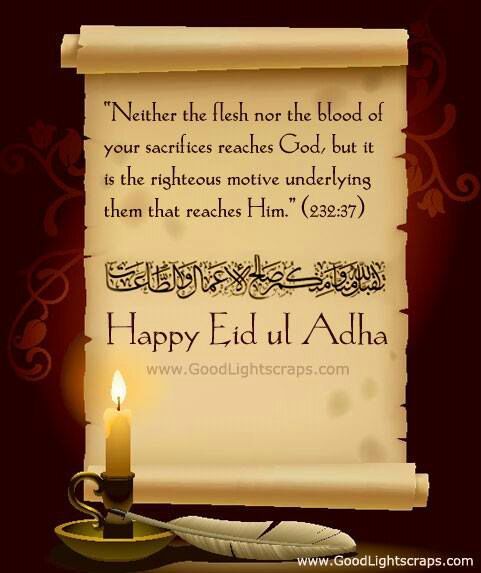 "Neither the flesh nor the blood of
your sacrifices reaches God, but it
is the righteous motive underlying
them that reaches Him." (232:37)
تقبل الله منا ومنكم صالح الاعمال والطاعات
Happy Eid ul Adha
www.GoodLightscraps.com
www.GoodLightscraps.com